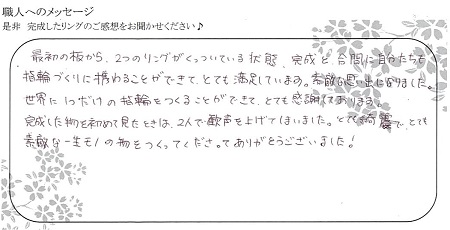 職人へのメッセージ
是非 完成したリングのご感想をお聞かせください♪
最初の板から、2つのリングがくっついている状態、完成と、合間に自分たちも
指輪づくりに携わることができて、とても満足しています。素敵な思い出になりました。
世界に1つだけの指輪をつくることができて、とても感謝しております。
完成した物を初めて見たときは、2人で歓声を上げてしまいました。とても綺麗で、とても
素敵な一生モノの物をつくってくださってありがとうございました!